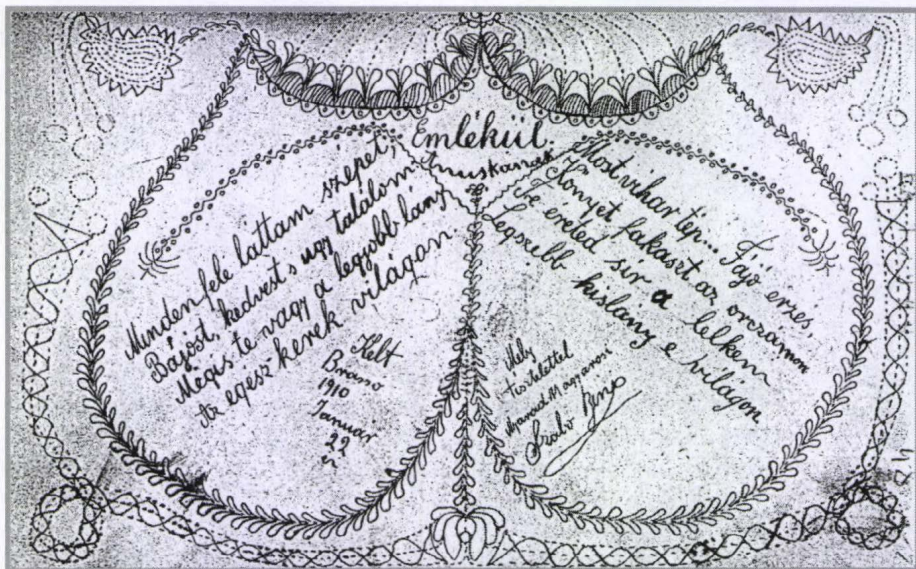 Emlékül
Anuskának
Minden fele láttam szépet,
Bájost, kedvest s ugy találom
Mégis te vagy a legjobb lány
Az egész kerek világon.
Kelt
Brasso
1910
Januar
22
én
Most vihar tép... Fájó erzés,
Könyet fakaszt az orczámon
De ereted sir a lelkem
Legszebb kislány e világon
Mély
Tisztelettel
Szabo